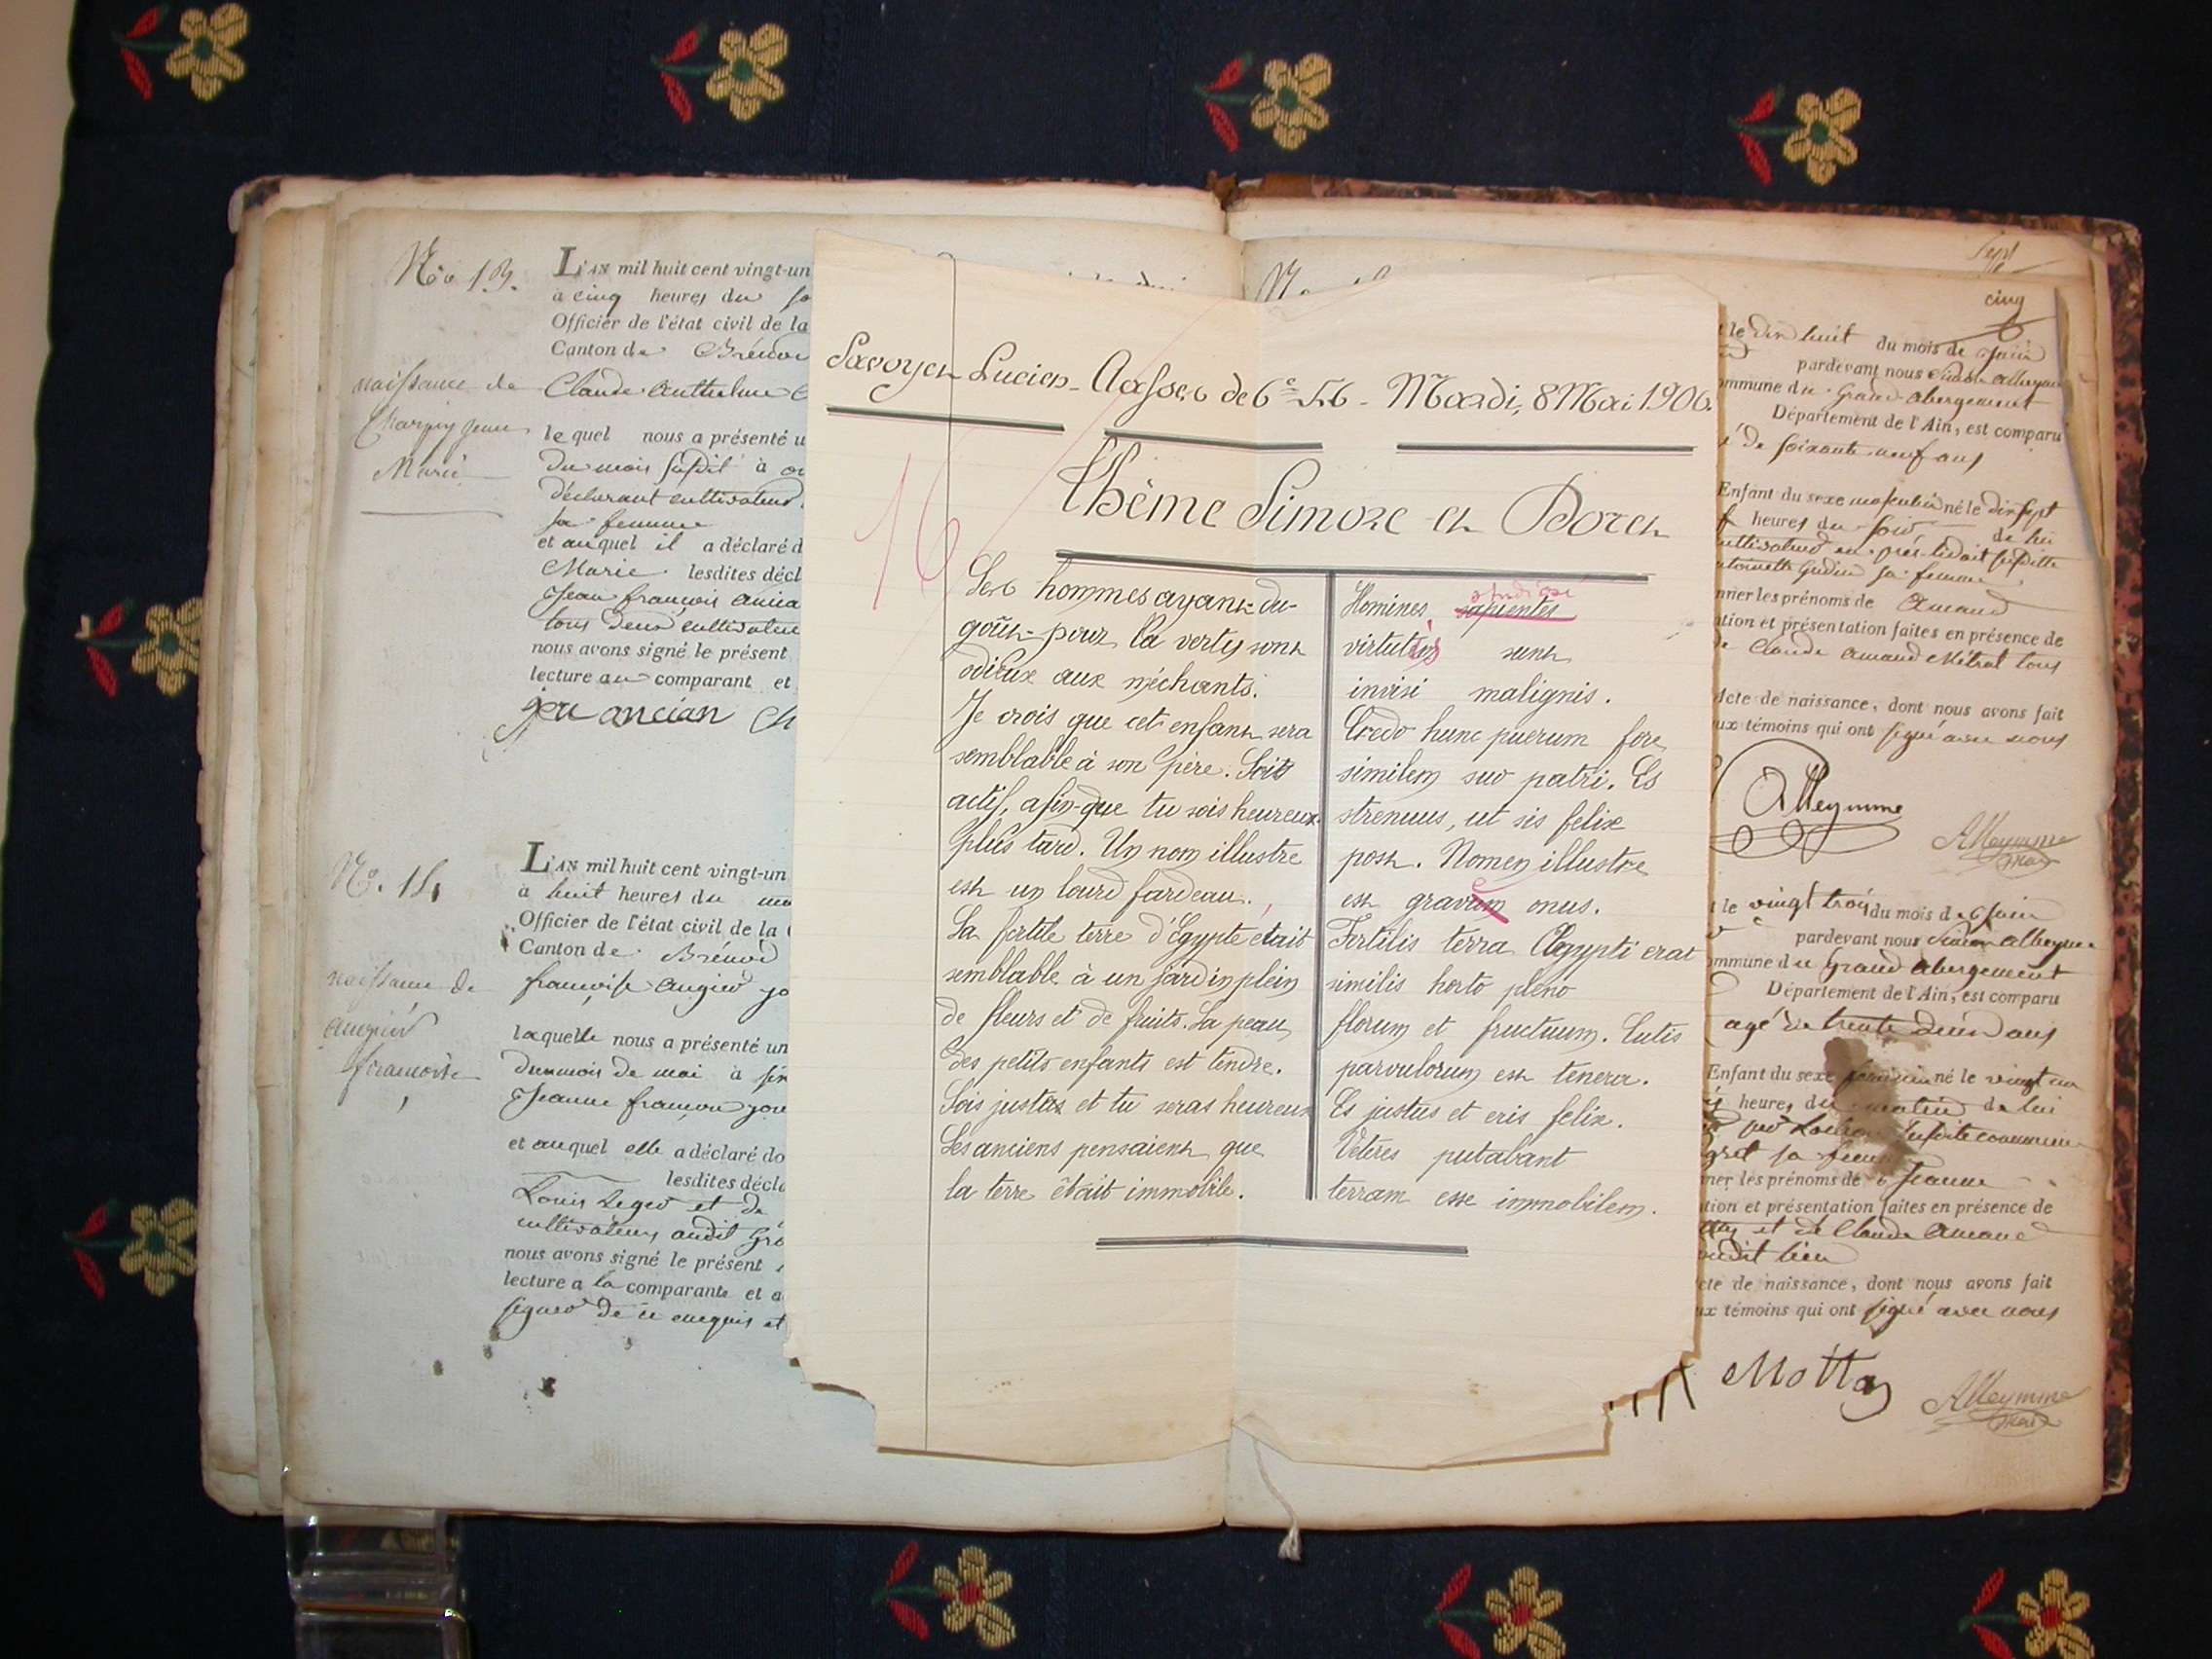 No. 13.
L'AN mil huit cent vingt-un
à cinq heures du
Officier de l'état civil de la
Canton de
naissance de
Claude Anthelme
Marie
lequel nous a présenté
du mois susdit à
déclarant cultivateur
sa femme
et auquel il a déclaré
Marie lesdites décl
Jean françois
tous deux cultivateur
nous avons signé le présent
lecture au comparant et
ancian
No. 14
L'AN mil huit cent vingt-un
à huit heures du
Officier de l'état civil de la
Canton de Brénod
naissance de
françoise
laquelle nous a présenté un
du mois de mai à
Jeanne
et auquel elle a déclaré
lesdites décl
Louis Leger et de
cultivateurs audit
nous avons signé le présent
lecture a la comparante et
signer de ce enquis et
Savoyen Lucien - Classe de 6e - Mardi, 8 Mai 1906.
16
Thème
Les hommes ayant du
goût pour la vertu sont
odieux aux méchants.
Je crois que cet enfant sera
semblable à son père. Sois
actif, afin que tu sois heureux
plus tard. Un nom illustre
est un lourd fardeau.
La fertile terre d'Egypte était
semblable à un jardin plein
de fleurs et de fruits. La peau
des petits enfants est tendre.
Sois juste et tu seras heureux
Les anciens pensaient que
la terre était immobile.
studiosi
Homines sapientes
virtutis sunt
invisi malignis.
Credo hunc puerum fore
similem suo patri. Es
strenuus, ut sis felix
post. Nomen illustre
est grave onus.
Fertilis terra Ægypti erat
similis horto pleno
florum et fructuum. Cutis
parvulorum est tenera.
Es justus et eris felix.
Veteres putabant
terram esse immobilem.
Sept
cinq
le dix huit du mois de Juin
pardevant nous
ommune du Grand abergement
Département de l'Ain, est comparu
de soixante neuf ans
Enfant du sexe masculin né le dix sept
heures du soir de lui
sa femme
nner les prénoms de Amand
ation et présentation faites en présence de
de Claude Amand Métral tous
Acte de naissance, dont nous avons fait
ux témoins qui ont signé avec nous
Alleymme
Alleymme
le vingt trois du mois de Juin
pardevant nous
ommune du Grand Abergement
Département de l'Ain, est comparu
agé de trente deux ans
Enfant du sexe feminin né le vingt
heures du matin de lui
susdite commune
sa femme
ner les prénoms de Jeanne
tion et présentation faites en présence de
et de Claude Amand
audit lieu
cte de naissance, dont nous avons fait
ux témoins qui ont signé avec nous
Mottaz
Alleymme